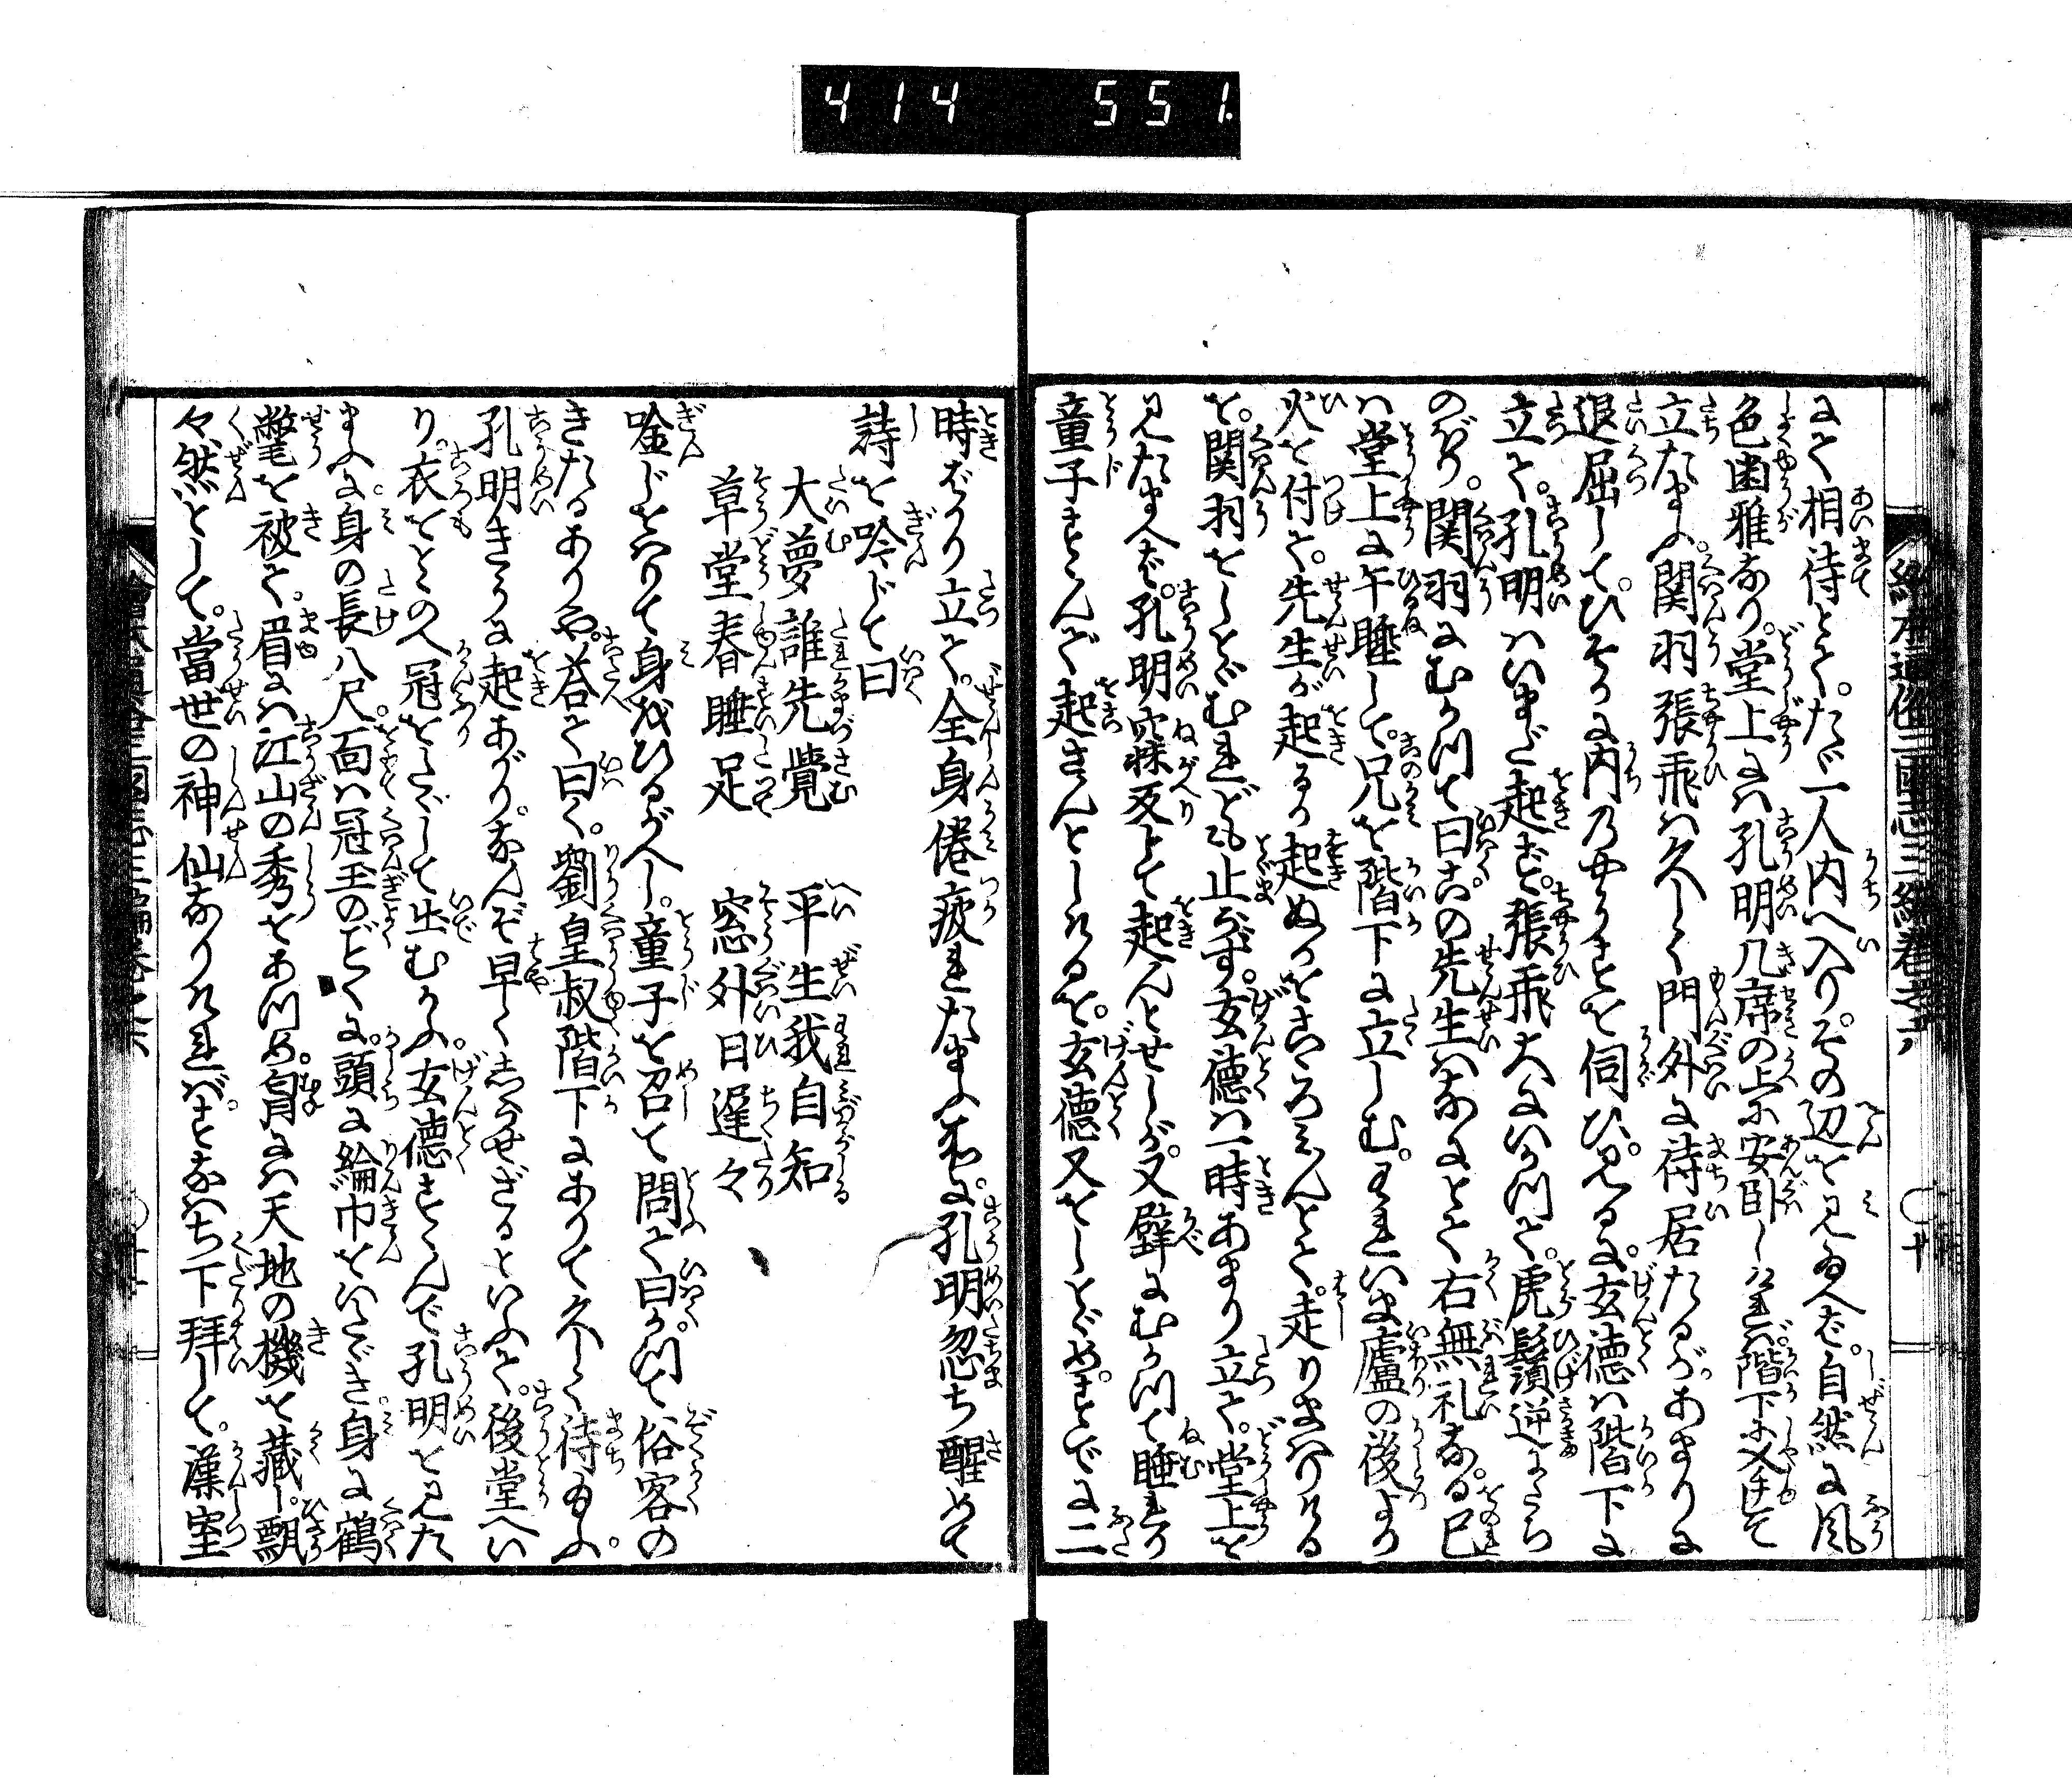 414 551.
繪本通俗三國志三編卷之六
○十
にて相待とて。たゞ一人内へ入り。その辺を見玉へば。自然に風
色幽雅なり。堂上には孔明几席の上に安臥しければ。階下に叉手して
立たまふ。関羽張飛は久しく門外に待居たるが。あまりに
退屈して。ひそかに内のやうすを伺ひ。見るに。玄德は階下に
立て。孔明はいまだ起ず。張飛大にいかつて。虎鬚逆にたち
のぼり。関羽にむかつて曰。この先生はなにとて右無礼なる。己
は堂上に午睡して。兄を階下に立しむ。われいま廬の後より
火を付て。先生が起るか起ぬかをこゝろみんとて。走りまはりける
を。関羽をしとゞむれども止らず。玄德は一時あまり立て。堂上を
見たまへば。孔明寐返して起んとせしが。又壁にむかつて睡ければ
童子すゝんで起さんとしけるを。玄德又をしとゞめ。すでに二
時ばかり立て。全身倦疲れたまふ所に。孔明忽ち醒めて
詩を吟じて曰
大夢誰先覺　平生我自知
草堂春睡足　窓外日遲々
唫じをはりて身をひるがへし。童子を召て問て曰。かつて俗客の
きたるありや。荅て曰く。劉皇叔階下にありて久しく待玉ふ。
孔明きうに起あがり。なんぞ早くしらせざるといふて。後堂へい
り。衣をとゝのへ冠をたゞして出むかふ。玄德すゝんで孔明を見た
まふに。身の長八尺。面は冠玉のごとくに。頭に綸巾をいたゞき。身に鶴
氅を被て。眉には江山の秀をあつめ。胷には天地の機を藏し。飄
々然として。當世の神仙なりければ。すなはち下拜して。漢室